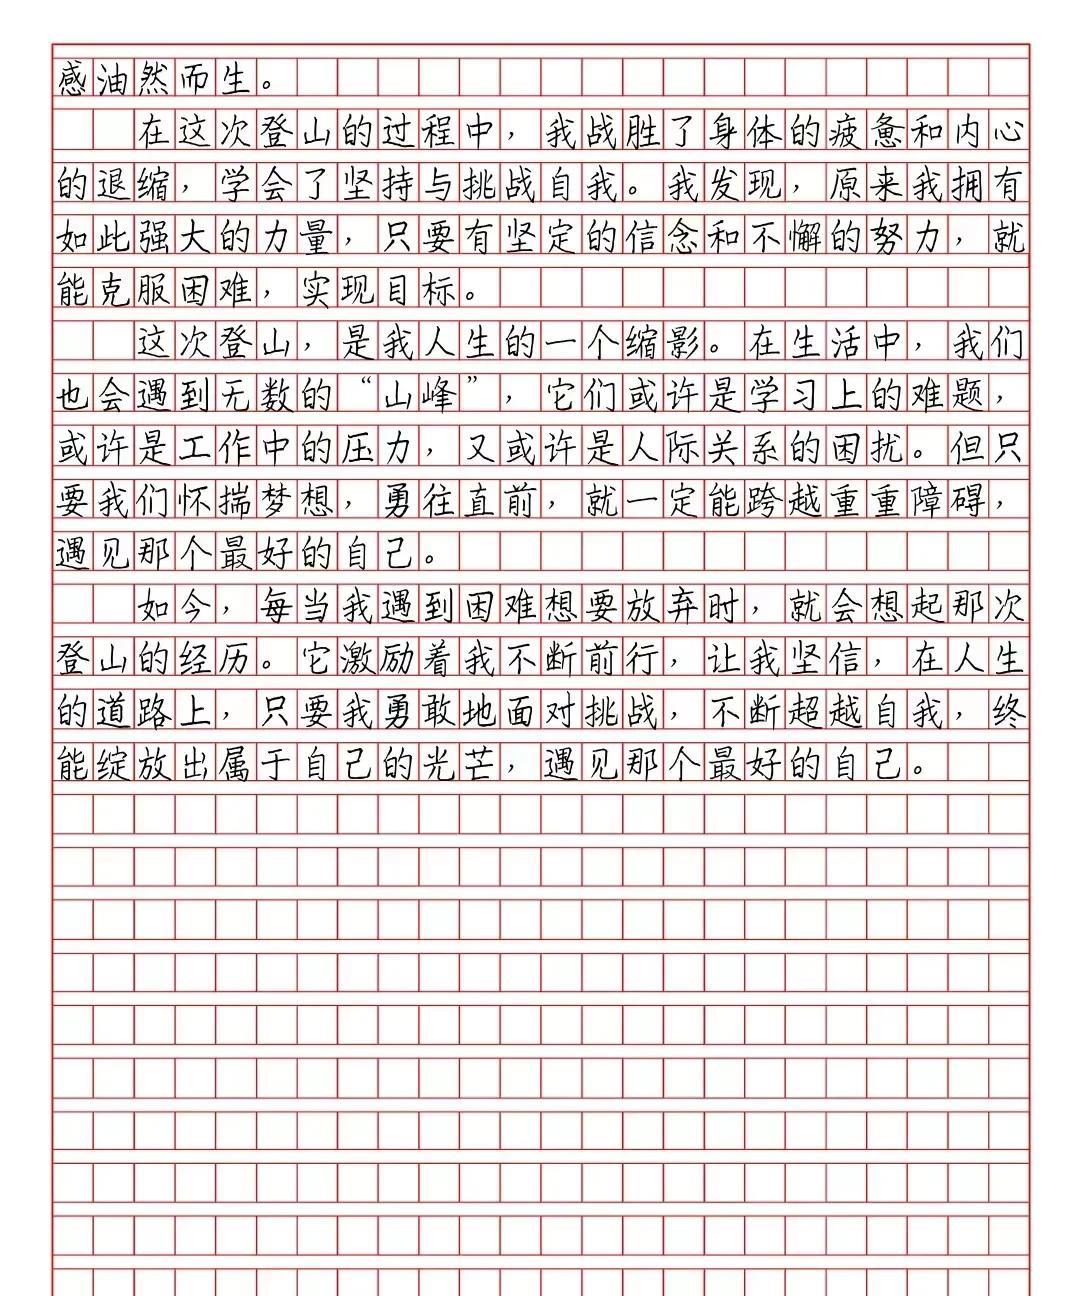 感油然而生。
在这次登山的过程中，我战胜了身体的疲惫和内心
的退缩，学会了坚持与挑战自我。我发现，原来我拥有
如此强大的力量，只要有坚定的信念和不懈的努力，就
能克服困难，实现目标。
这次登山，是我人生的一个缩影。在生活中，我们
也会遇到无数的“山峰”，它们或许是学习上的难题，
或许是工作中的压力，又或许是人际关系的困扰。但只
要我们怀揣梦想，勇往直前，就一定能跨越重重障碍，
遇见那个最好的自己。
如今，每当我遇到困难想要放弃时，就会想起那次
登山的经历。它激励着我不断前行，让我坚信，在人生
的道路上，只要我勇敢地面对挑战，不断超越自我，终
能绽放出属于自己的光芒，遇见那个最好的自己。